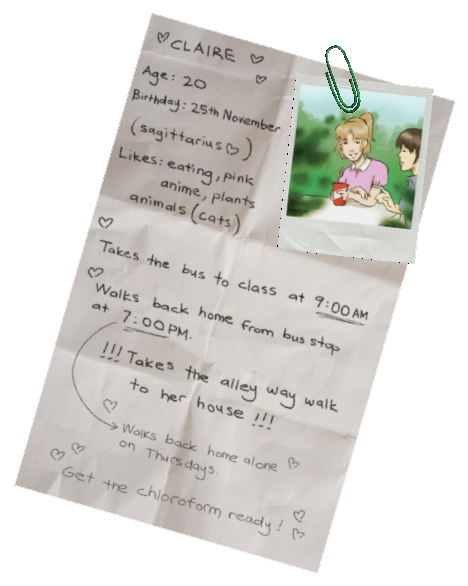 ♡ CLAIRE ♡
Age: 20 ♡
Birthday: 25th November
(sagittarius♡)
Likes: eating, pink
anime, plants
animals (cats)
♡
Takes the bus to class at 9:00AM
♡
Walks back home from bus stop
at 7:00PM.
!!! Takes the alley way walk
to her house !!!
♡
Walks back home alone ♡
on Thursdays.
♡ ♡
Get the chloroform ready! ♡
♡